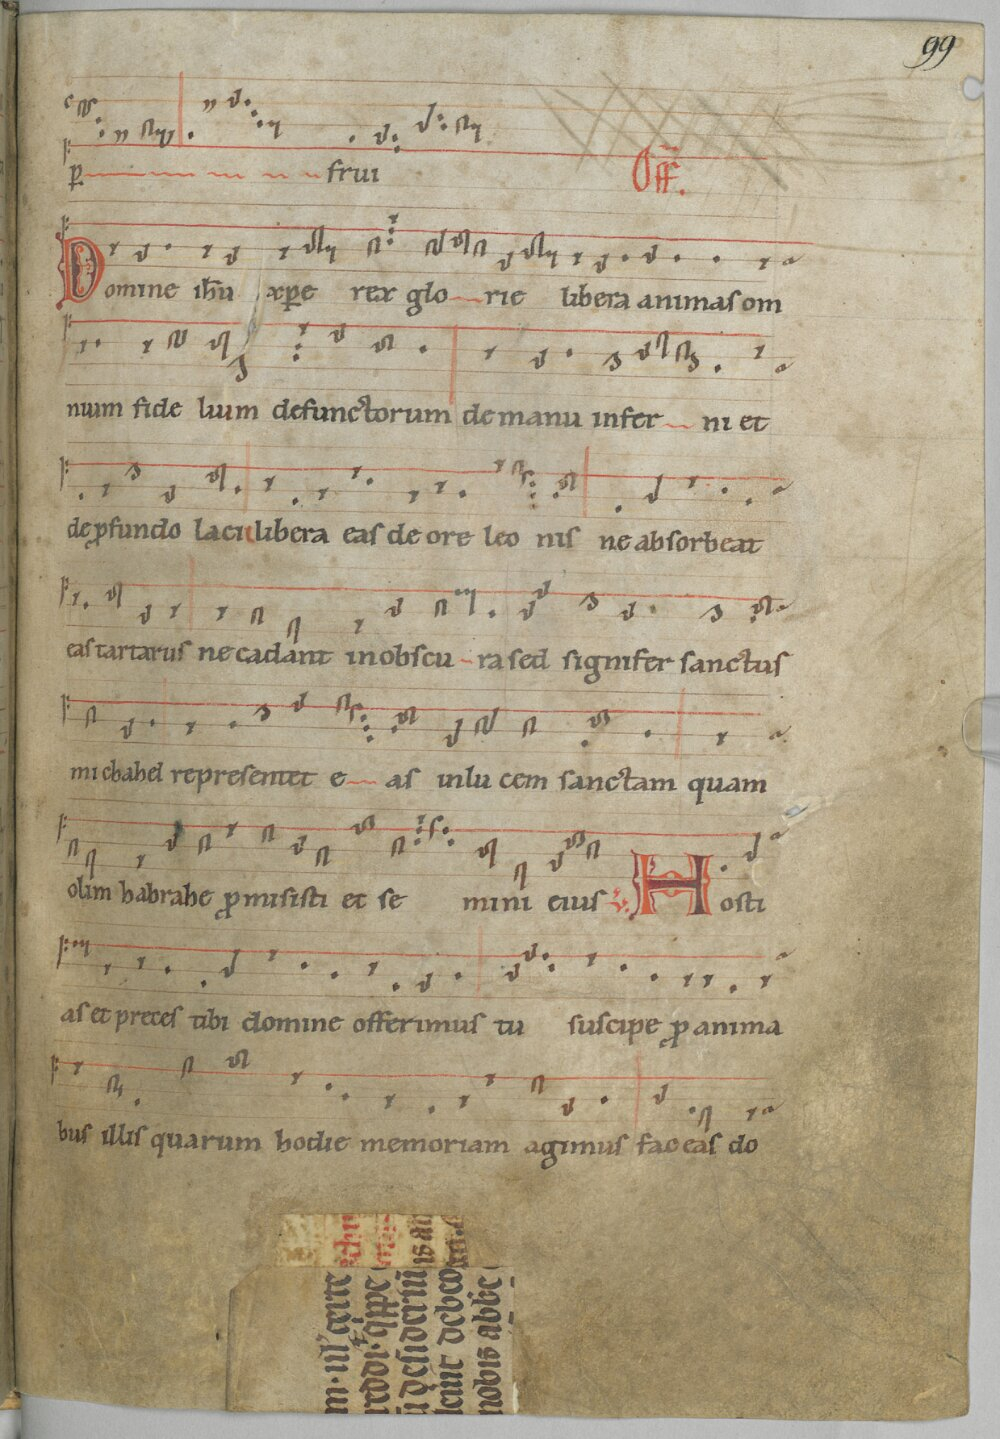 99
p frui Off.
Domine ihu xpe rex glo rie libera animas om
nium fide lium defunctorum de manu infer ni et
de profundo laci libera eas de ore leo nis ne absorbeat
eas tartarus ne cadant in obscu ra sed signifer sanctus
michahel representet e as in lu cem sanctam quam
olim habrahe promisisti et se mini eius Hosti
as et preces tibi domine offerimus tu suscipe pro anima
bus illis quarum hodie memoriam agimus fac eas do
nobis